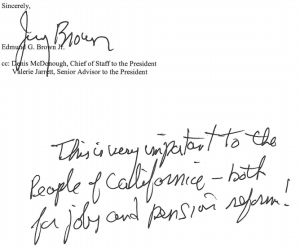 Sincerely,
Jerry Brown
Edmund G. Brown Jr.
cc: Denis McDonough, Chief of Staff to the President
Valerie Jarrett, Senior Advisor to the President
This is very important to the
People of California – both
for jobs and pension reform!